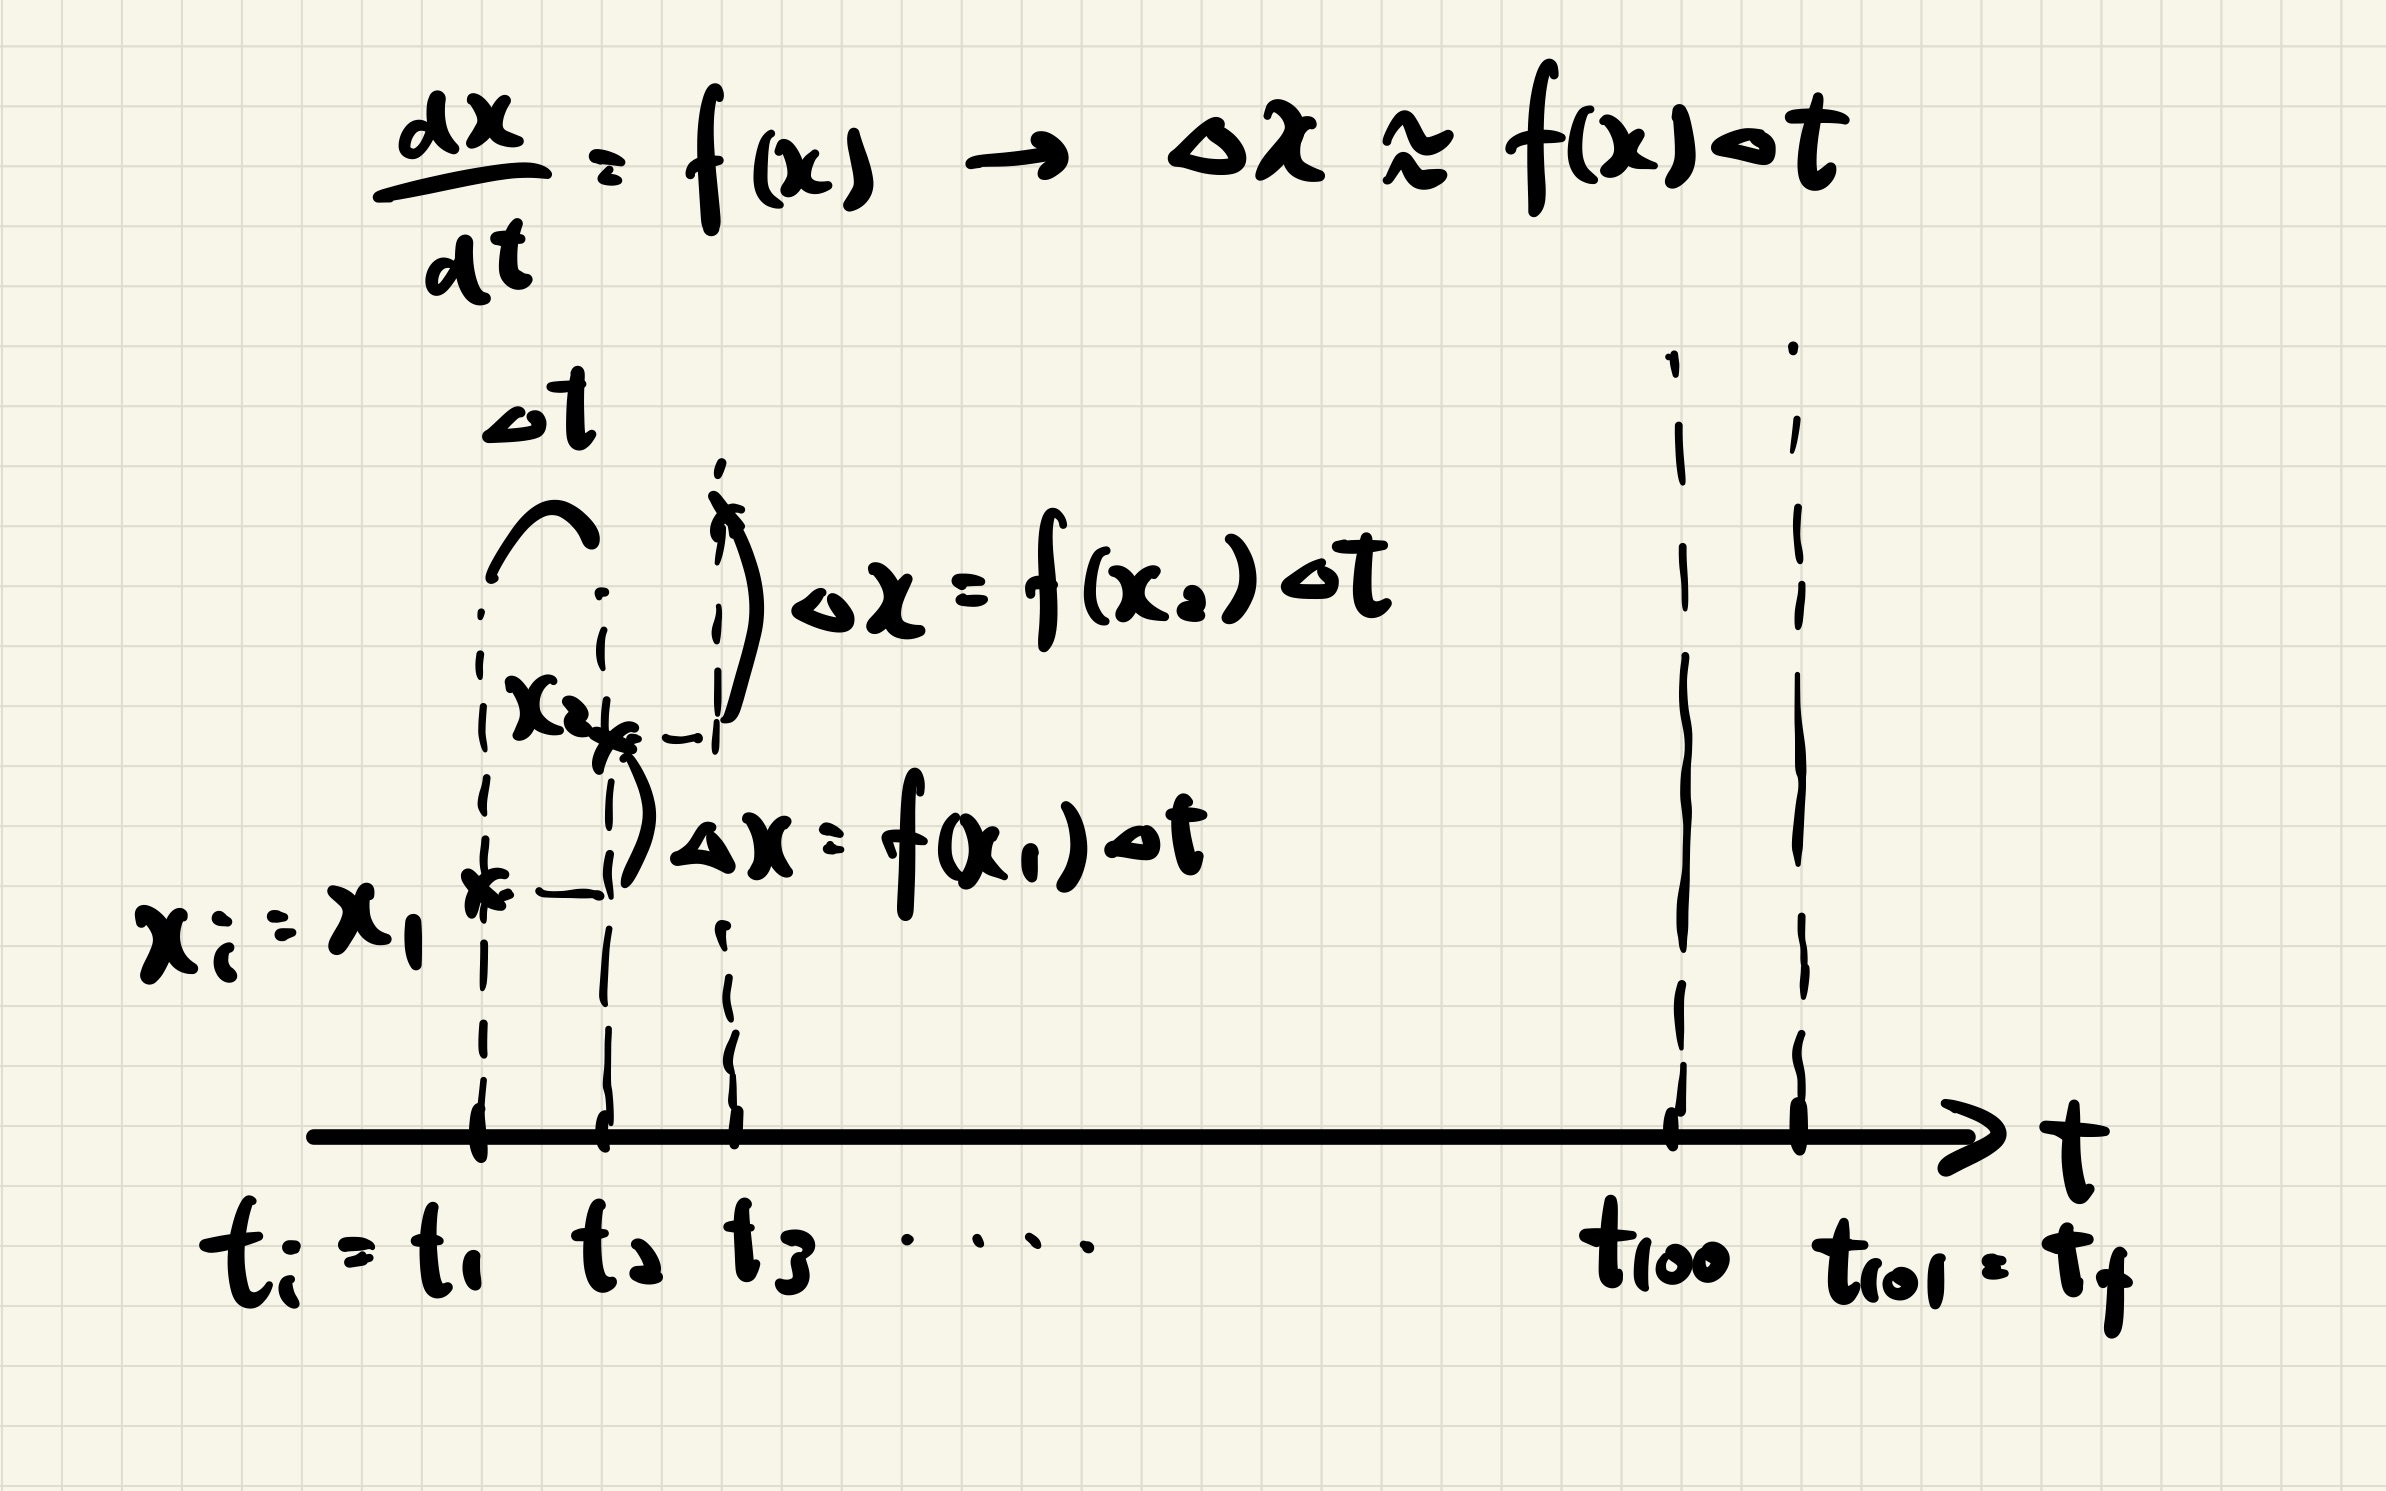 dx/dt = f(x) → Δx ≈ f(x)Δt
Δt
Δx = f(x₂)Δt
x₂
Δx = f(x₁)Δt
xᵢ = x₁
t
tᵢ = t₁ t₂ t₃ . . . . t₁₀₀ t₁₀₁ = t_f